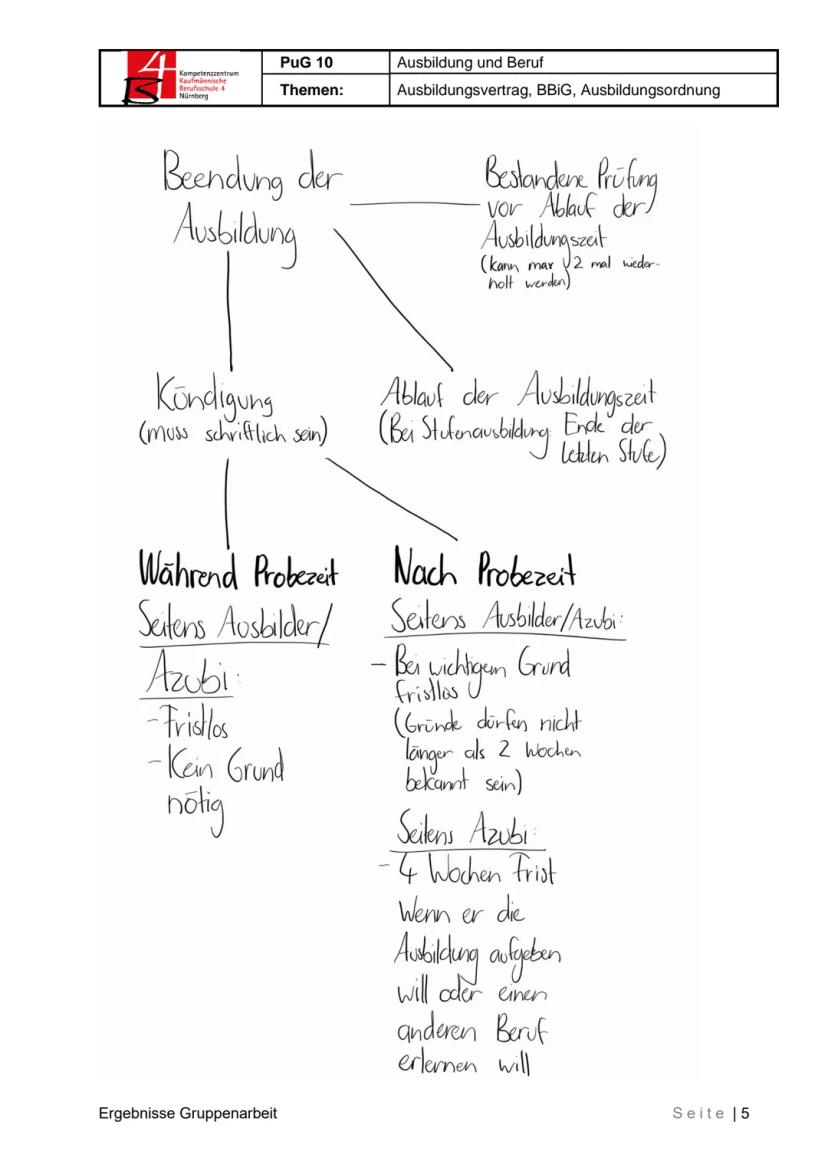 4
B
Kompetenzzentrum
Kaufmännische
Berufsschule 4
Nürnberg
PuG 10
Ausbildung und Beruf
Themen:
Ausbildungsvertrag, BBiG, Ausbildungsordnung
Beendung der
Ausbildung
Bestandene Prüfung
vor Ablauf der
Ausbildungszeit
(kann max 2 mal wieder-
holt werden)
Kündigung
(muss schriftlich sein)
Ablauf der Ausbildungszeit
(Bei Stufenausbildung Ende der
letzten Stufe)
Während Probezeit
Seitens Ausbilder/
Azubi:
-Fristlos
-Kein Grund
nötig
Nach Probezeit
Seitens Ausbilder/Azubi:
- Bei wichtigem Grund
fristlos
(Gründe dürfen nicht
länger als 2 Wochen
bekannt sein)
Seitens Azubi:
- 4 Wochen Frist
Wenn er die
Ausbildung aufgeben
will oder einen
anderen Beruf
erlernen will
Ergebnisse Gruppenarbeit
Seite | 5